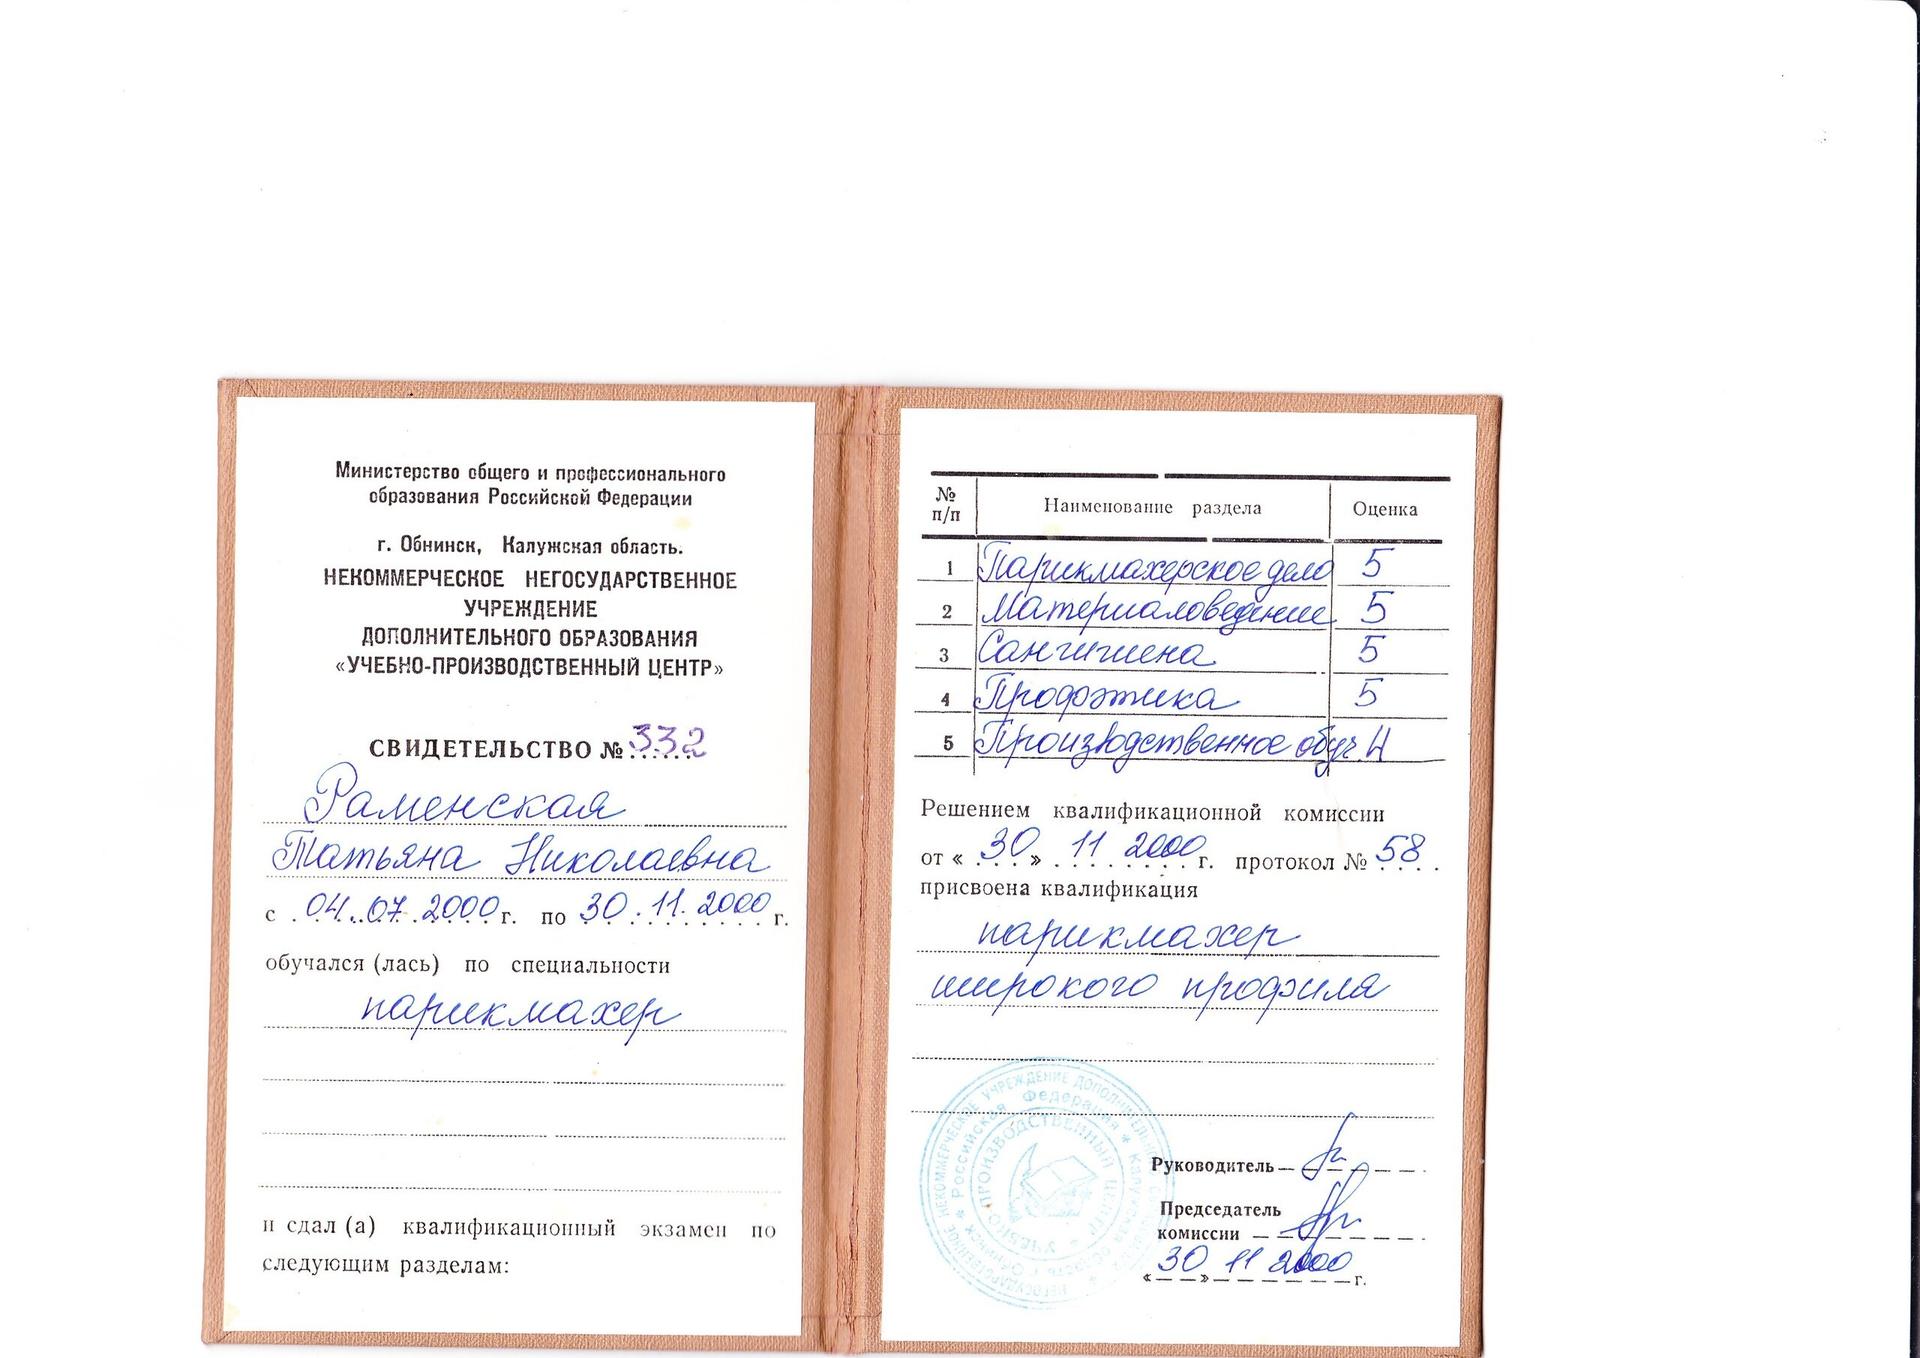 Министерство общего и профессионального
образования Российской Федерации
г. Обнинск, Калужская область.
НЕКОММЕРЧЕСКОЕ НЕГОСУДАРСТВЕННОЕ
УЧРЕЖДЕНИЕ
ДОПОЛНИТЕЛЬНОГО ОБРАЗОВАНИЯ
«УЧЕБНО-ПРОИЗВОДСТВЕННЫЙ ЦЕНТР»
СВИДЕТЕЛЬСТВО № 332
Раменская
Татьяна Николаевна
с 04.07.2000 г. по 30.11.2000 г.
обучался (лась) по специальности
парикмахер
и сдал (а) квалификационный экзамен по
следующим разделам:
№ п/п Наименование раздела Оценка
1 Парикмахерское дело 5
2 Материаловедение 5
3 Сангигиена 5
4 Профэтика 5
5 Производственное обуч. 4
Решением квалификационной комиссии
от « 30 » 11 2000 г. протокол № 58
присвоена квалификация
парикмахер
широкого профиля
НЕГОСУДАРСТВЕННОЕ НЕКОММЕРЧЕСКОЕ УЧРЕЖДЕНИЕ ДОПОЛНИТЕЛЬНОГО
Российская Федерация * Калужская область г. Обнинск *
УЧЕБНО-ПРОИЗВОДСТВЕННЫЙ ЦЕНТР
Руководитель
Председатель
комиссии
« 30 » 11 2000 г.